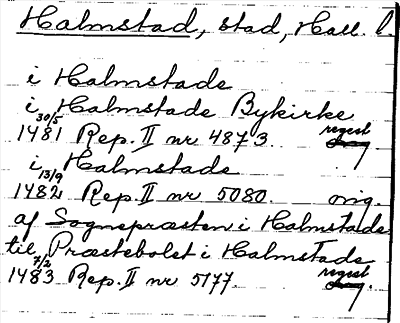 Halmstad, stad, Hall. l.
i Halmstade
i Halmstade Bykirke
1481 30/5 Rep. II nr 4873. regest
i Halmstade
1482 13/9 Rep. II nr 5080. orig.
af Sognepræsten i Halmstade
til Præstebolet i Halmstade
1483 7/2 Rep. II nr 5177. regest